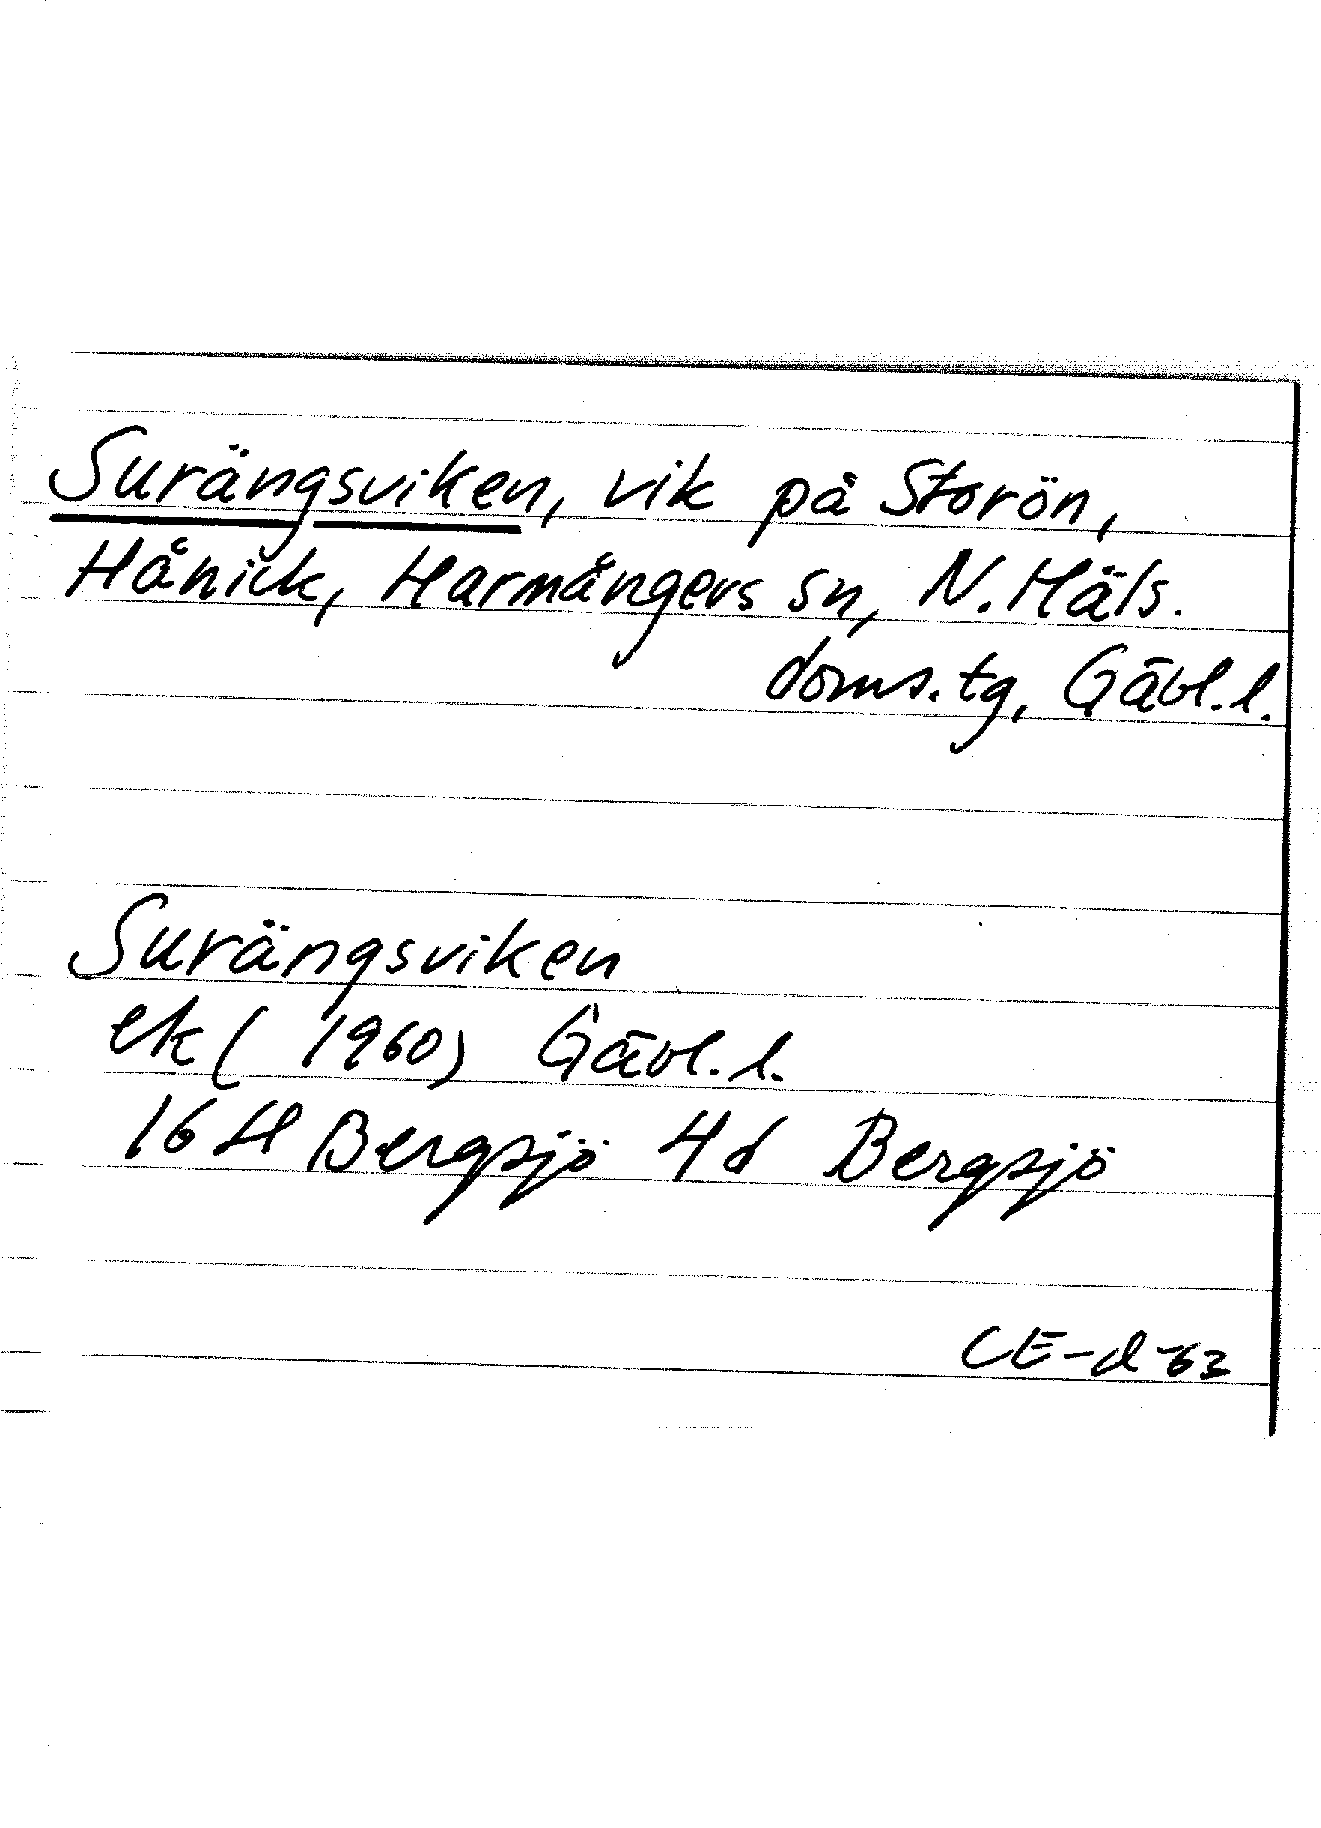 Surängsviken, vik på Storön,
Hånick, Harmångers sn, N. Häls.
doms.tg, Gävl.l.
Surängsviken
ek (1960) Gävl.l.
16 H Bergsjö 4d Bergsjö
CE-d-63